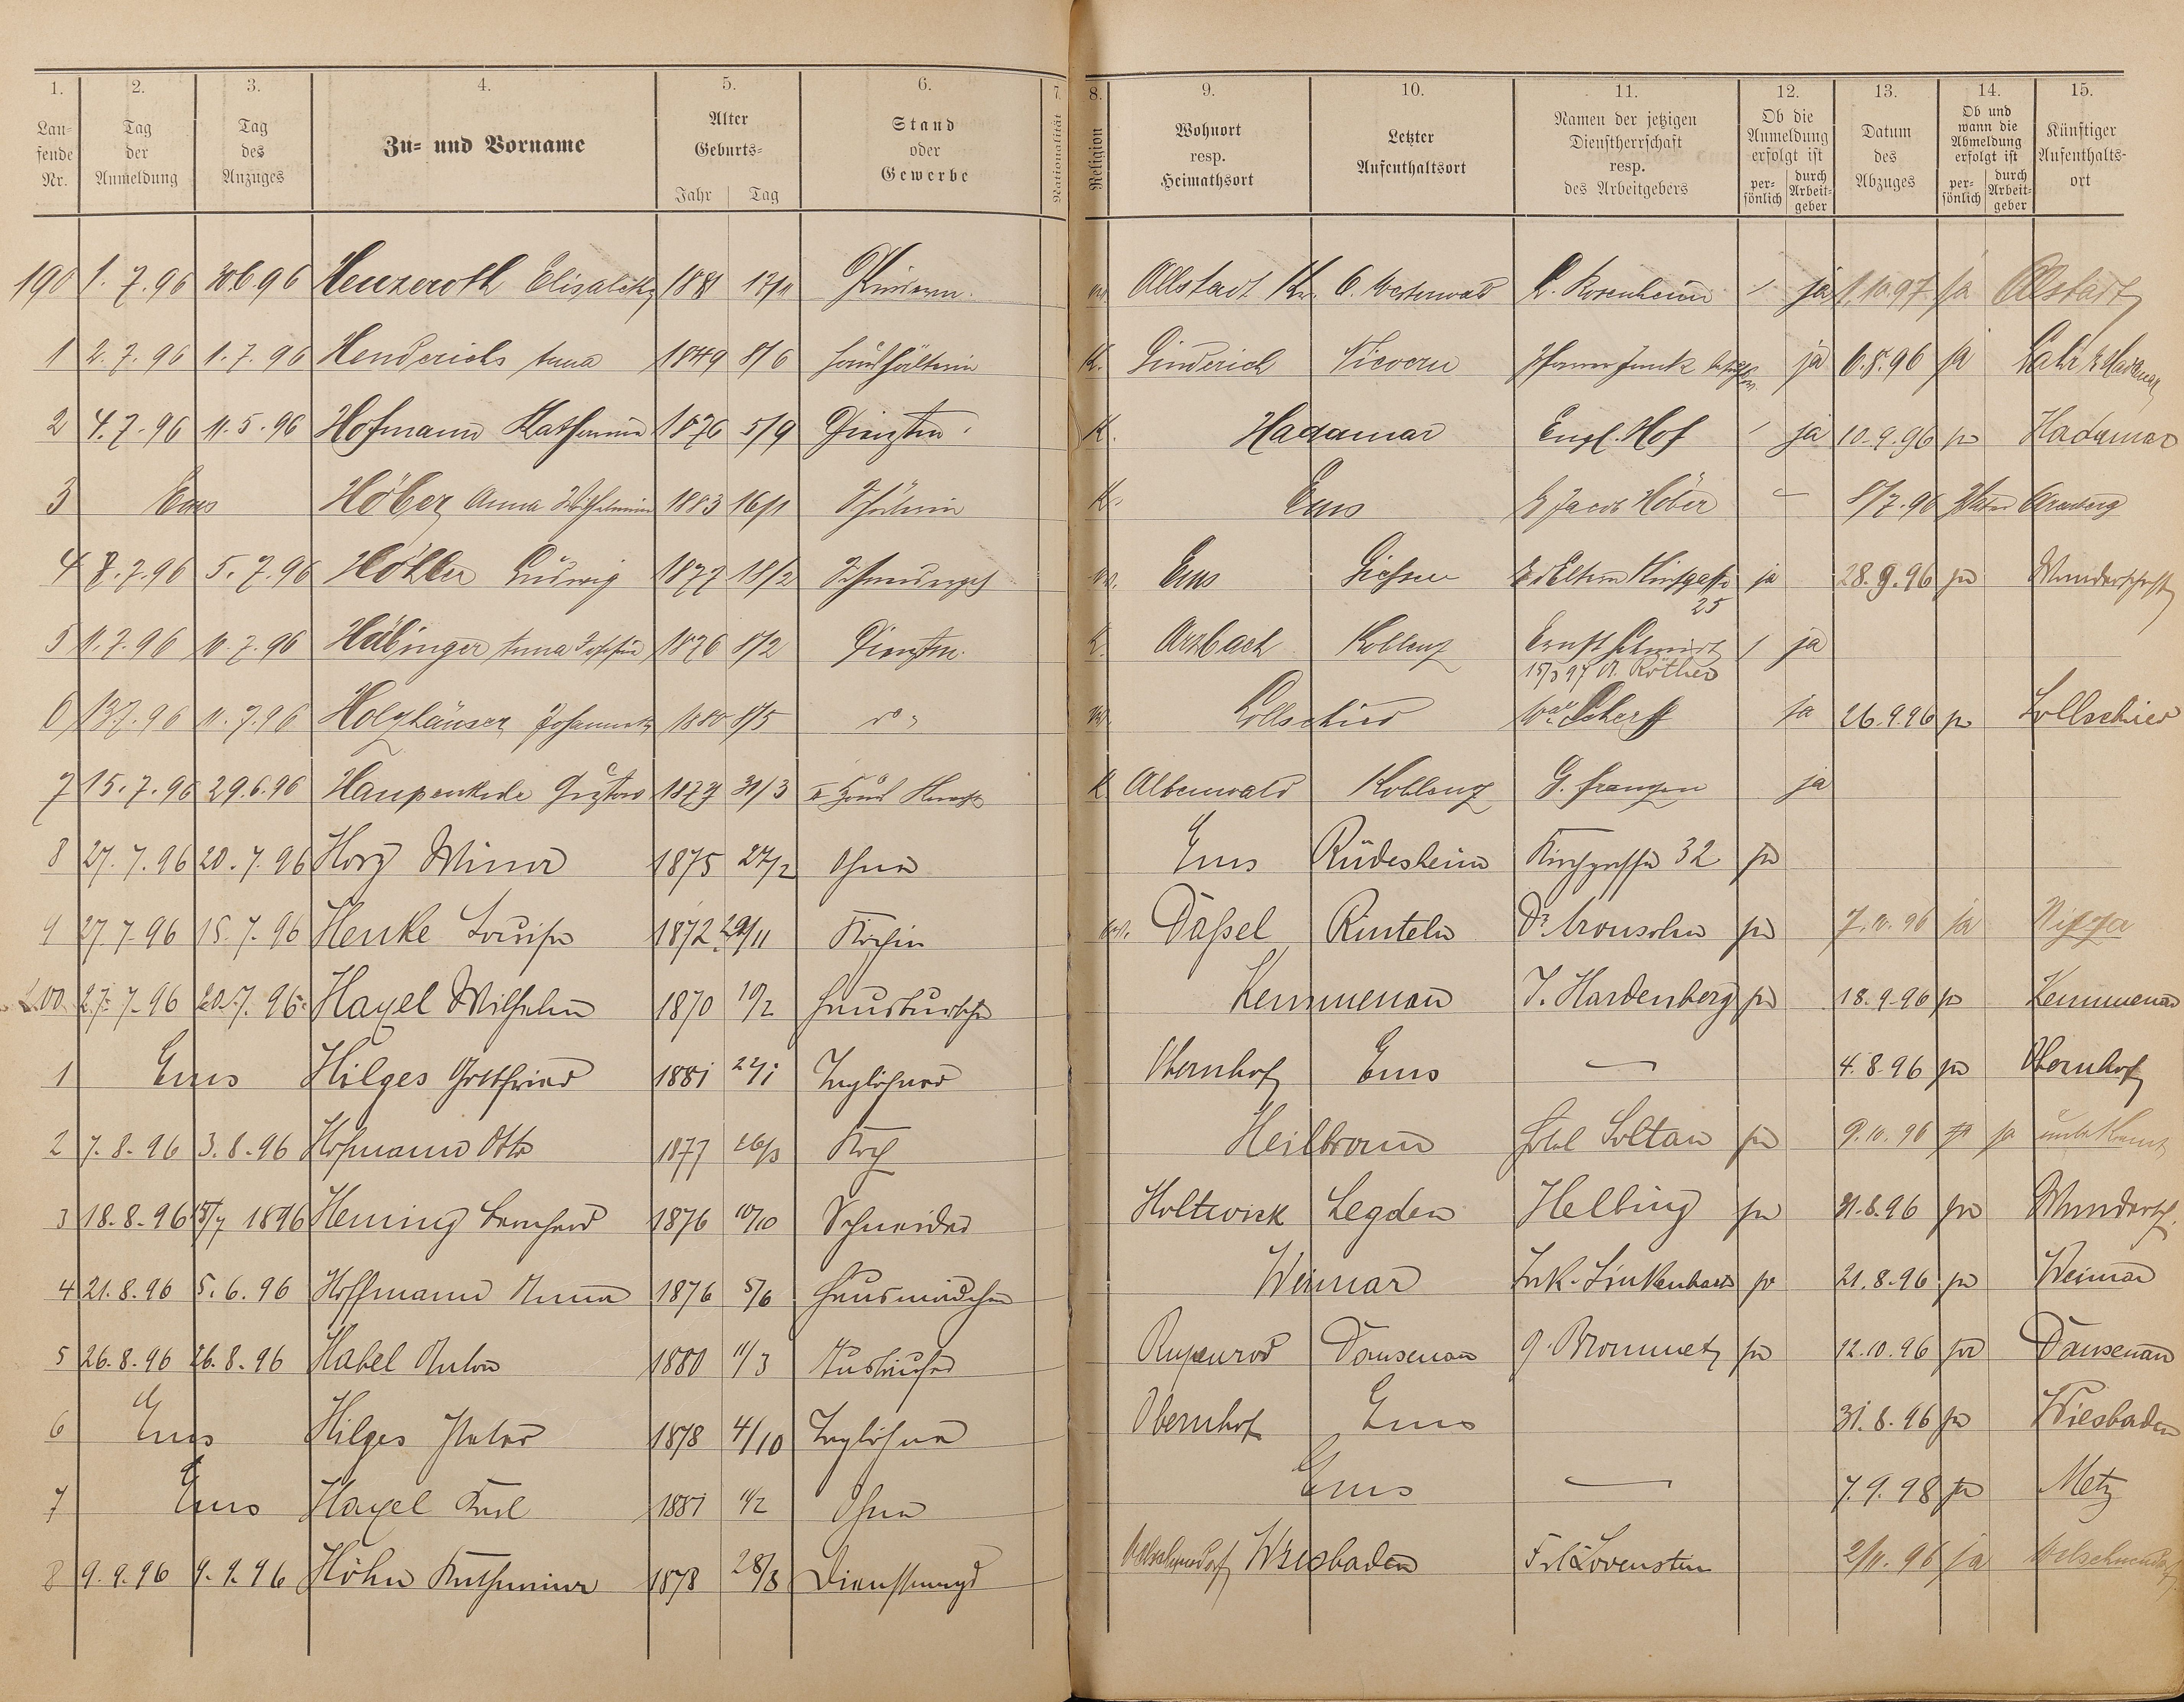 1. 2. 3. 4. 5. 6. 7. 8. 9. 10. 11. 12. 13. 14. 15.
Lau-fende Nr. Tag der Anmeldung Tag des Anzuges Zu- und Vorname Alter Geburts- Jahr Tag Stand oder Gewerbe Nationalität Religion Wohnort resp. Heimathsort Letzter Aufenthaltsort Namen der jetzigen Dienstherrschaft resp. des Arbeitgebers Ob die Anmeldung erfolgt ist per-sönlich durch Arbeit-geber Datum des Abzuges Ob und wann die Abmeldung erfolgt ist per-sönlich durch Arbeit-geber Künftiger Aufenthalts-ort
190 1. 7. 96 30 6 96 Henzeroth Elisabeth 1881 17/11 Allstadt Kr. O. Westerwald L. Rosenheim ja 1.10.97 ja Allstadt
1 2. 7. 96 1. 7. 96 Henderichs Anna 1849 8/6 Haushälterin K. Ginderich Nievern Pfarrer Funk ja 6.8.96 ja Lahr
2 4. 7. 96 11. 5. 96 Hofmann Katharina 1876 5/9 Dienstm. K. Hadamar Engl. Hof ja 10.9.96 ja Hadamar
3 Ems Höber Anna Wilhelmine 1883 16/1 Schülerin K. Ems Jacob Höber 8/7.96 Vater
4 8. 7. 96 5. 7. 96 Höhler Ludwig 1877 18/2 Ems Giehsen Eltern Kirchgasse 25 ja 28.9.96 ja Wanderschaft
5 11. 7. 96 11. 7. 96 Häbinger Anna Josefine 1876 8/2 Dienstm. K. Arzbach Koblenz Ernst Schmidt ja
15/3 97 A. Röther
6 13 7. 96 11. 7. 96 Holzhäuser Johannette 1880 8/5 do Lollschied Wwe Scherff ja 26.9.96 ja Lollschied
7 15. 7. 96 29. 6. 96 Haupenkede Gustav 1877 31/3 K Altenwald Koblenz G. Franzen ja
8 27. 7. 96 20. 7. 96 Horz Minna 1875 27/2 Ohne Ems Rüdesheim Kirchgasse 32 ja
9 27. 7. 96 15. 7. 96 Henke Louise 1872 29/11 Köchin evl. Daßel Rinteln Dr. Aronsohn ja 7.10.96 ja Nizza
200 27. 7. 96 20. 7. 96 Hayel Wilhelm 1870 10/2 Hausbursche Kemmenau J. Hardenberg ja 18.9.96 ja Kemmenau
1 Ems Hilges Gottfried 1881 22/1 Taglöhner Obernhof Ems — 4.8.96 ja Obernhof
2 7. 8. 96 3. 8. 96 Hofmann Otto 1877 26/3 Koch Heilbronn Hotel Soltau ja 9.10.96 ja ja unbekannt
3 18. 8. 96 15/7 1896 Hening Bernhard 1876 10/10 Schneider Holtwick Legden Helbing ja 31.8.96 ja Wandersch.
4 21. 8. 96 5. 6. 96 Hoffmann Anna 1876 5/6 Hausmädchen Weimar Linkenbach ja 21.8.96 ja Weimar
5 26. 8. 96 26. 8. 96 Habel Anton 1880 11/3 Ausläufer Rupenrod Dausenau G. Brommet ja 12.10.96 ja Dausenau
6 Ems Hilges Peter 1878 4/10 Taglöhner Obernhof Ems 31.8.96 ja Wiesbaden
7 Ems Hayel Karl 1881 11/2 Ohne Ems — 7.9.98 ja Metz
8 9. 9. 96 9. 9. 96 Höhn Katharina 1878 28/3 Dienstmagd Welschneudorf Wiesbaden Frl Lovenstein 2/11.96 ja Welschneudorf